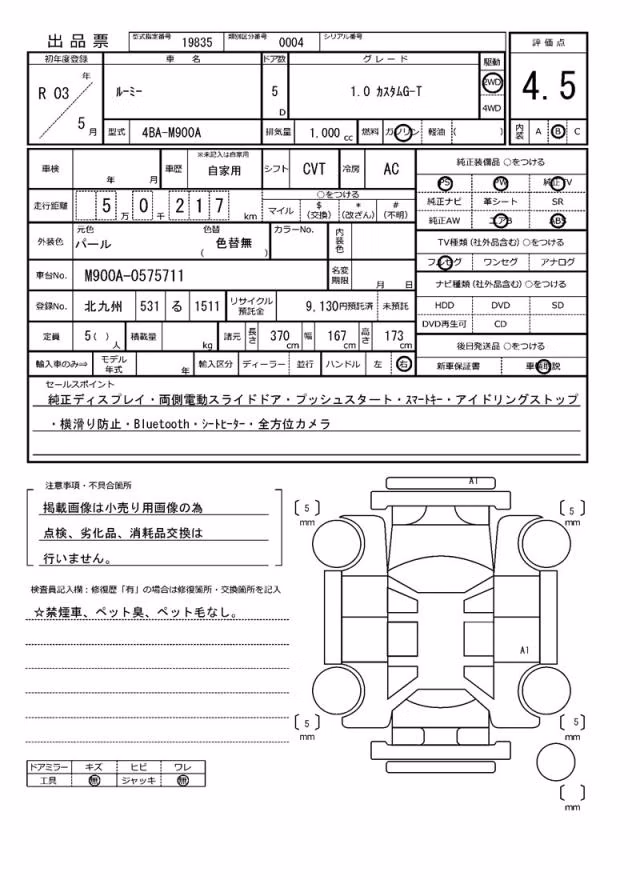 出品票
型式指定番号 19835 類別区分番号 0004 シリアル番号
初年度登録 車名 ドア数 グレード 駆動 評価点
R 03 年 5 月
ルーミー
5 D
1.0 カスタムG-T
2WD
4WD
4.5
型式 4BA-M900A 排気量 1.000 cc 燃料 ガソリン 軽油 ( ) 内装 A B C
車検 年 月 車歴 ※未記入は自家用 自家用 シフト CVT 冷房 AC
純正装備品 ○をつける
PS PW 純正TV
走行距離 5 万 0 千 2 1 7 km
○をつける
マイル $ (交換) * (改ざん) # (不明)
純正ナビ 革シート SR
純正AW エアB ABS
外装色 元色 パール 色替 ( 色替無 ) カラーNo. 内装色
TV種類 (社外品含む) ○をつける
フルセグ ワンセグ アナログ
車台No. M900A-0575711 名変期限 月 日
ナビ種類 (社外品含む) ○をつける
HDD DVD SD
DVD再生可 CD
登録No. 北九州 531 る 1511 リサイクル預託金 9,130円預託済 未預託
定員 5( ) 人 積載量 kg 諸元 長さ 370 cm 幅 167 cm 高さ 173 cm
後日発送品 ○をつける
新車保証書
輸入車のみ⇒ モデル年式 年 輸入区分 ディーラー 並行 ハンドル 左 右
セールスポイント
純正ディスプレイ・両側電動スライドドア・プッシュスタート・スマートキー・アイドリングストップ
・横滑り防止・Bluetooth・シートヒーター・全方位カメラ
注意事項・不具合箇所
掲載画像は小売り用画像の為
点検、劣化品、消耗品交換は
行いません。
検査員記入欄：修復歴「有」の場合は修復箇所・交換箇所を記入
☆禁煙車、ペット臭、ペット毛なし。
A1
[ 5 ] mm
[ 5 ] mm
A1
[ 5 ] mm
[ 5 ] mm
[ ] mm
ドアミラー キズ ヒビ ワレ
工具 無 ジャッキ 無